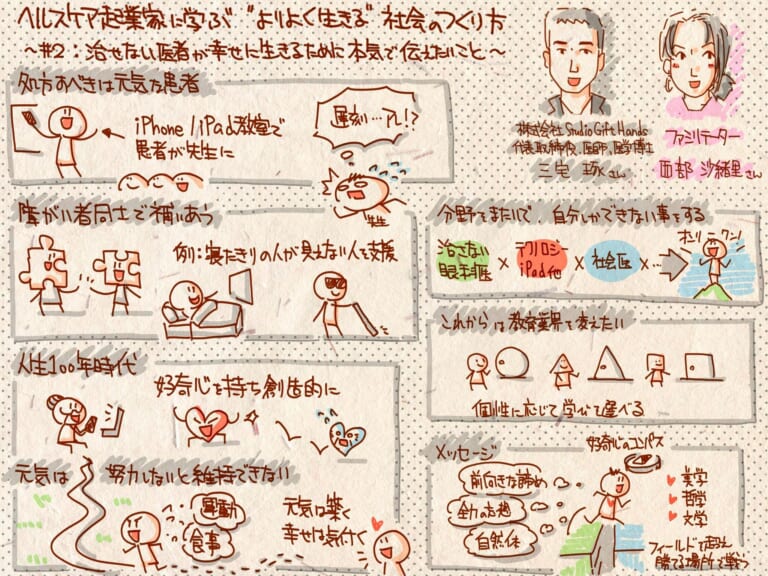 ヘルスケア起業家に学ぶ "よりよく生きる" 社会のつくり方
～#2：治せない医者が幸せに生きるために本気で伝えたいこと～
処方すべきは元気な患者
iPhone/iPad教室で
患者が先生に
遅刻…アレ!?
先生
株式会社 Studio Gift Hands
代表取締役、医師、医学博士
三宅 琢さん
ファシリテーター
面部 沙緒里さん
障がい者同士で補いあう
例：寝たきりの人が見えない人を支援
分野をまたいで、自分しかできない事をする
治さない
眼科医
×
テクノロジー
iPad他
×
社会医
×…
オンリーワン!
これからは教育業界を変えたい
個性に応じて学び方を選べる
人生100年時代
好奇心を持ち創造的に
元気は 努力しないと維持できない
運動
食事
元気は築く
幸せは気付く
メッセージ
前向きな諦め
全力妄想
自然体
好奇心のコンパス
美学
哲学
文学
フィールドを超え
勝てる場所で戦う